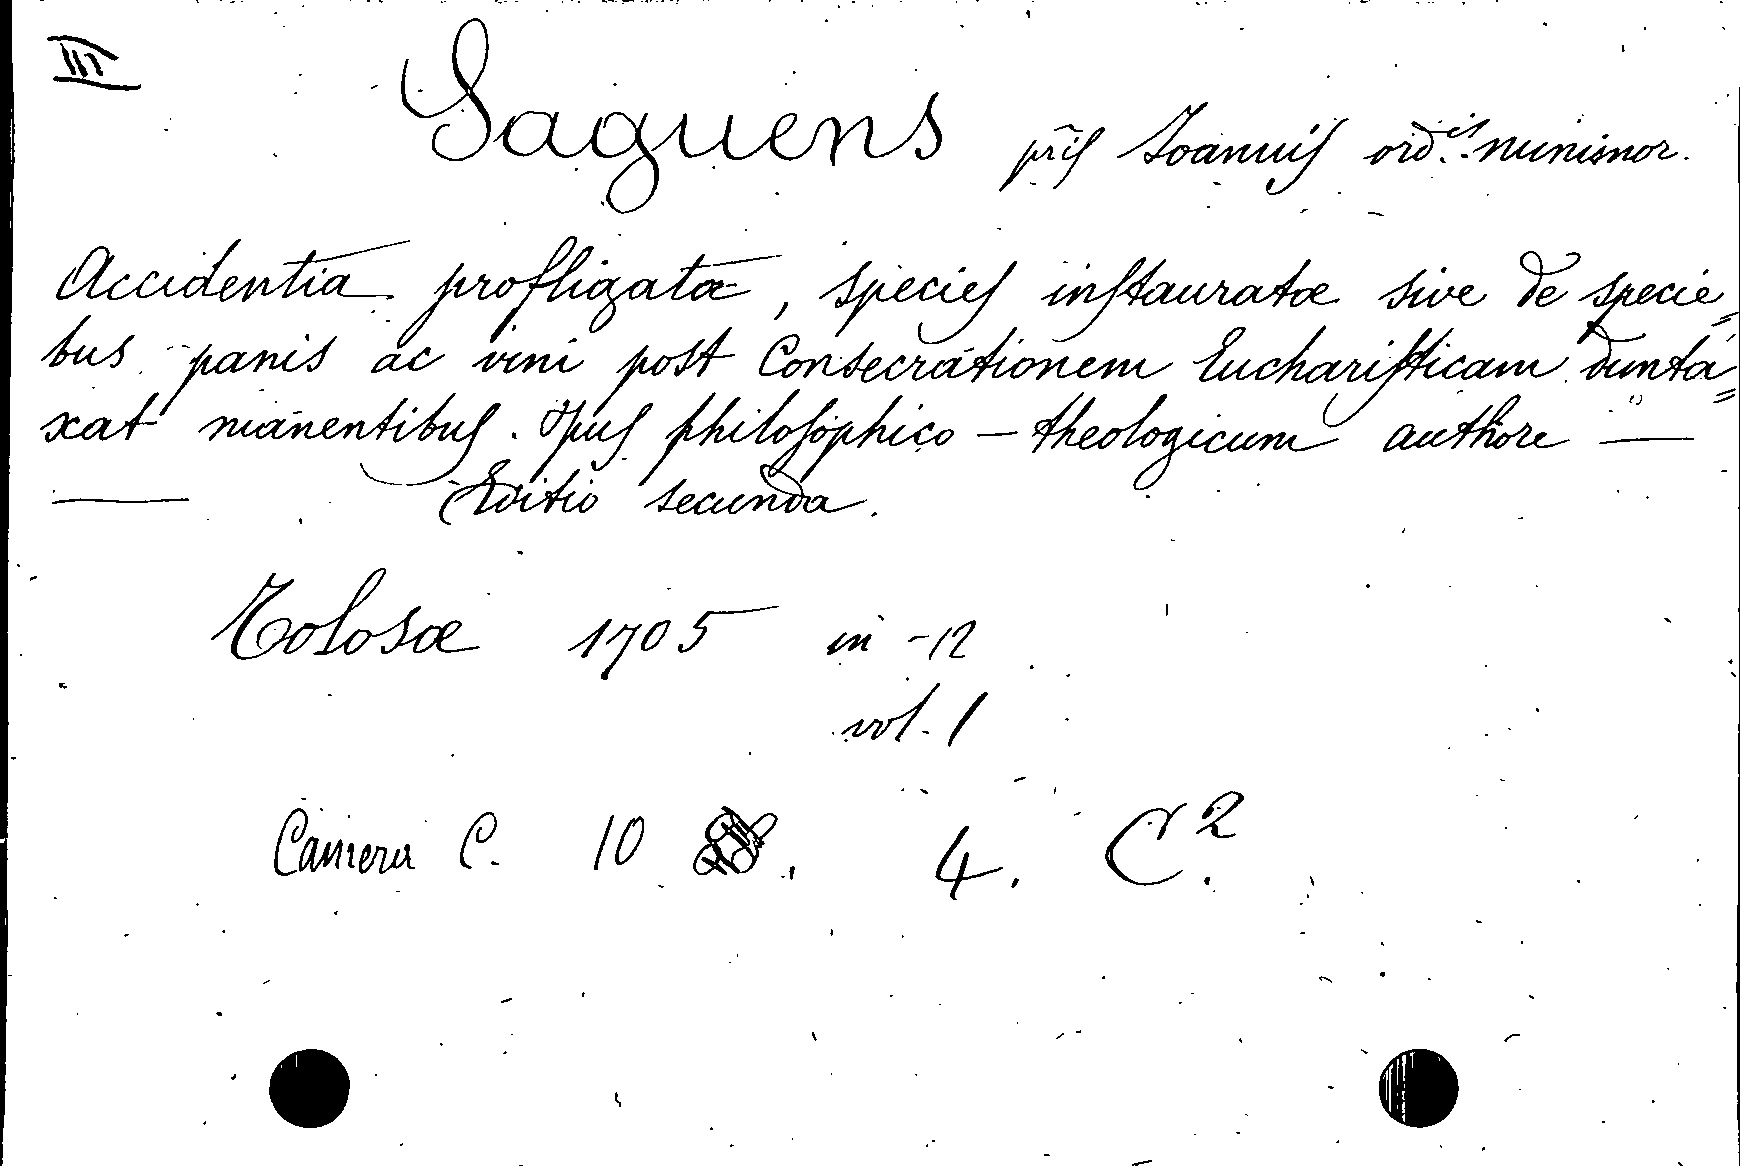 III
Saguens pris Joannis ord.is minimor.
Accidentia profligata, species instauratæ sive de specie=
bus panis ac vini post Consecrationem Eucharisticam dunta=
xat manentibus. Opus philosophico - theologicum authore —
— Editio secunda.
Tolosæ 1705 in -12
vol. 1
Camera C. 10 . 4. C.2